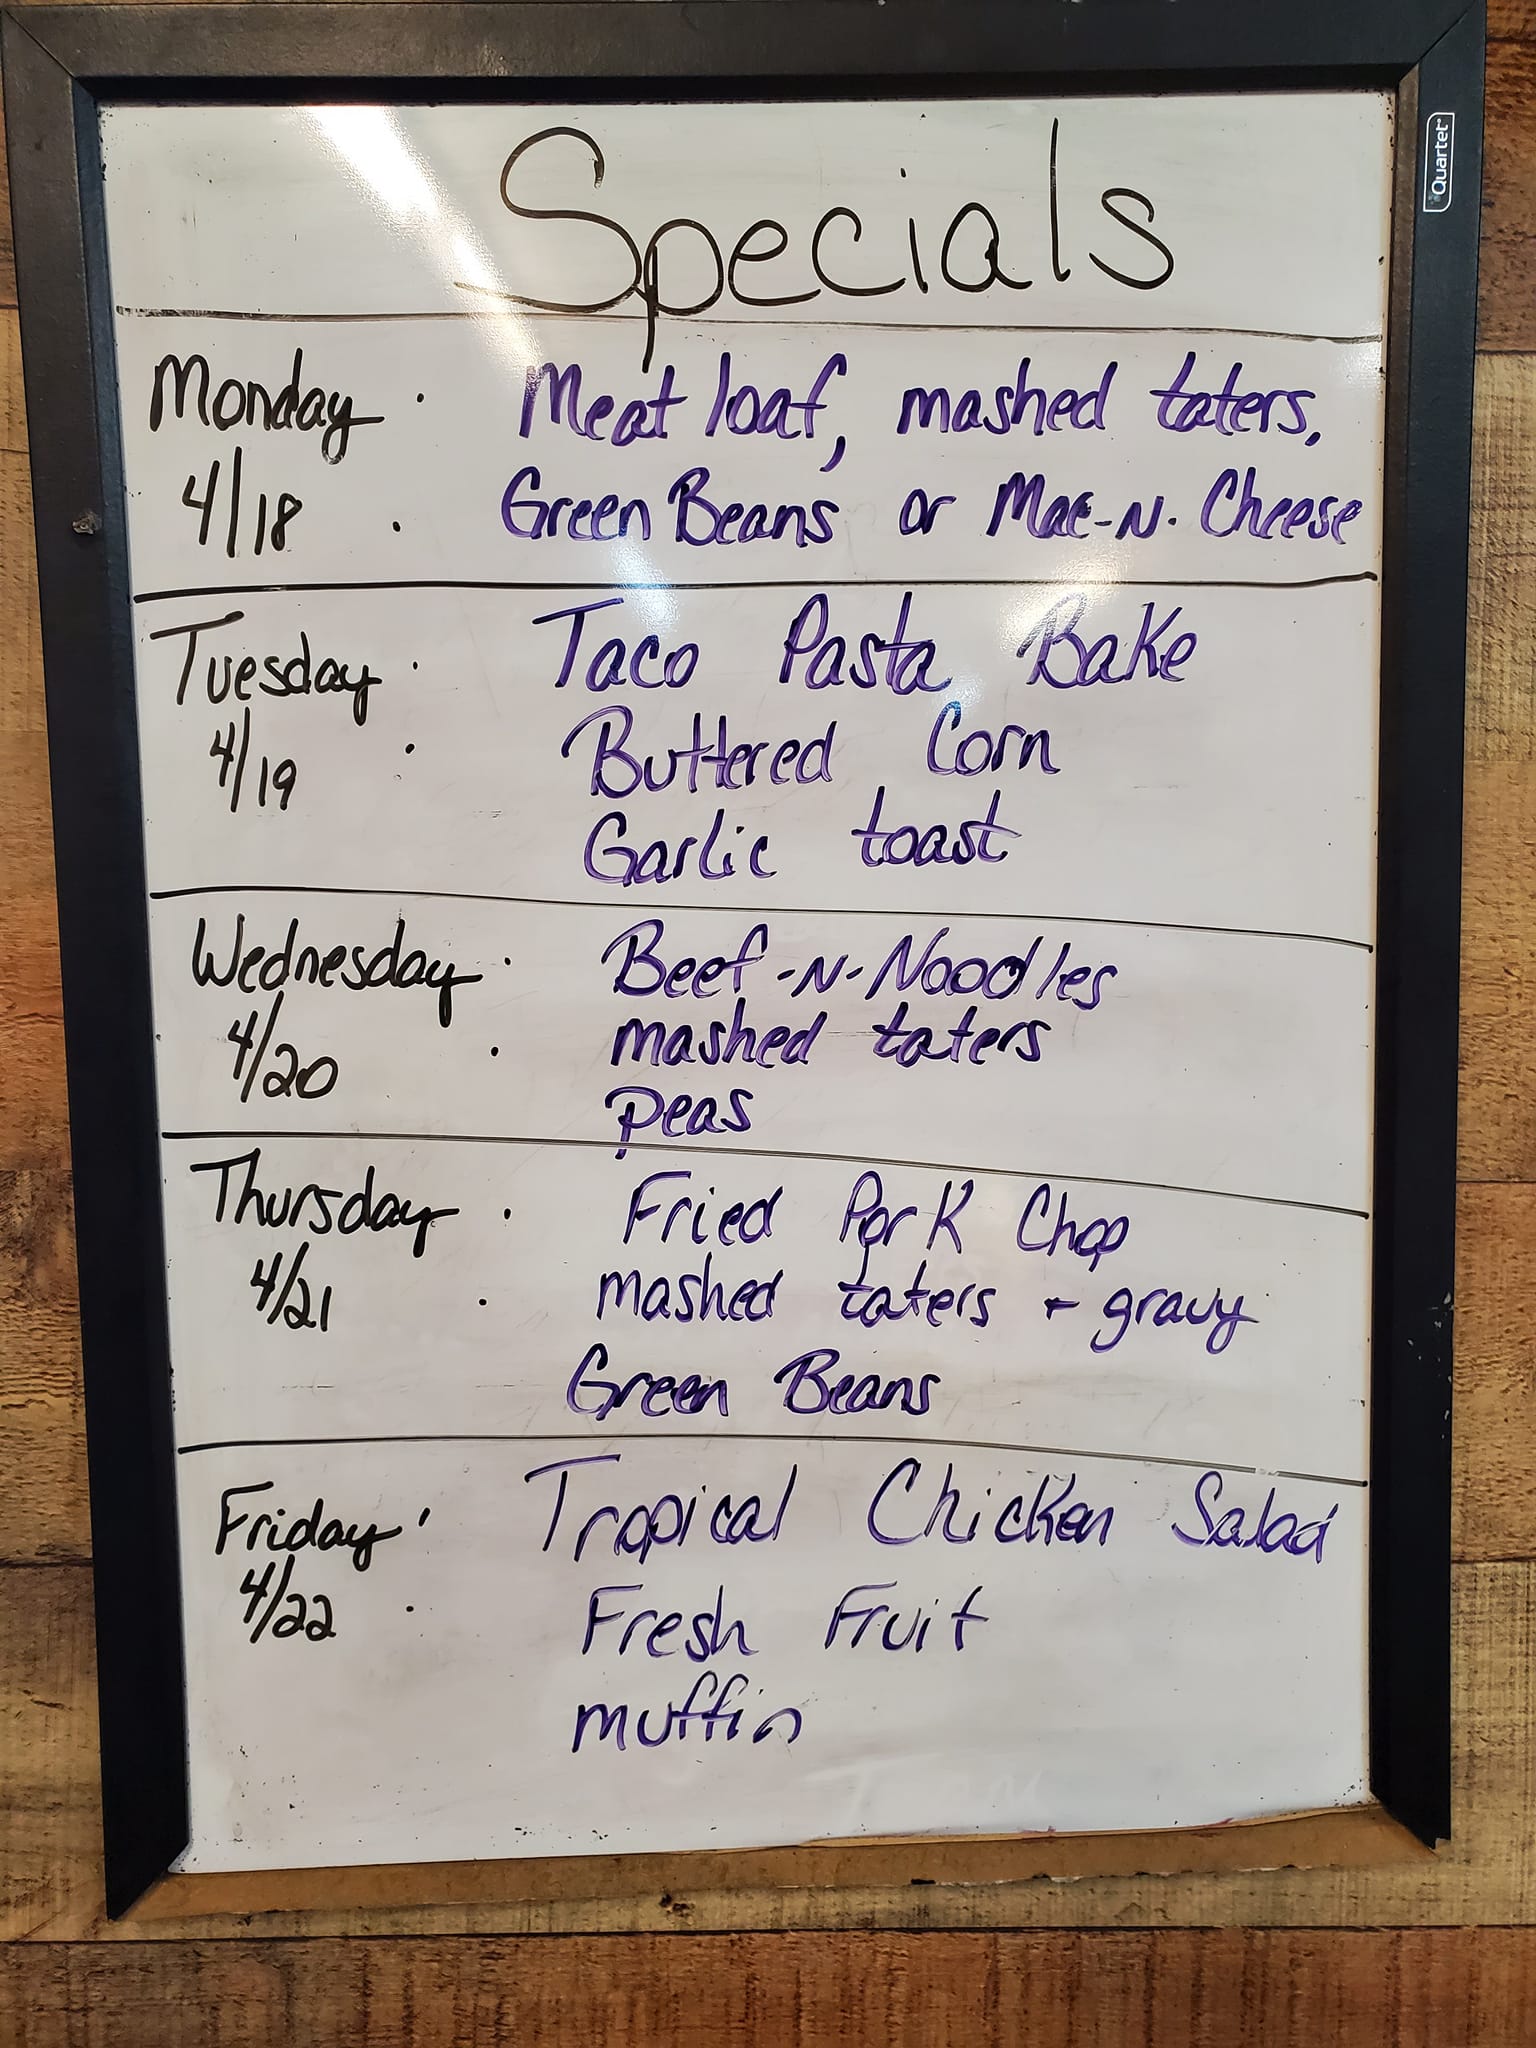 Quartet
Specials
Monday
4/18
Meat loaf, mashed taters,
Green Beans or Mac-N-Cheese
Tuesday
4/19
Taco Pasta Bake
Buttered Corn
Garlic toast
Wednesday
4/20
Beef-N-Noodles
mashed taters
peas
Thursday
4/21
Fried Pork Chop
mashed taters + gravy
Green Beans
Friday
4/22
Tropical Chicken Salad
Fresh Fruit
muffin